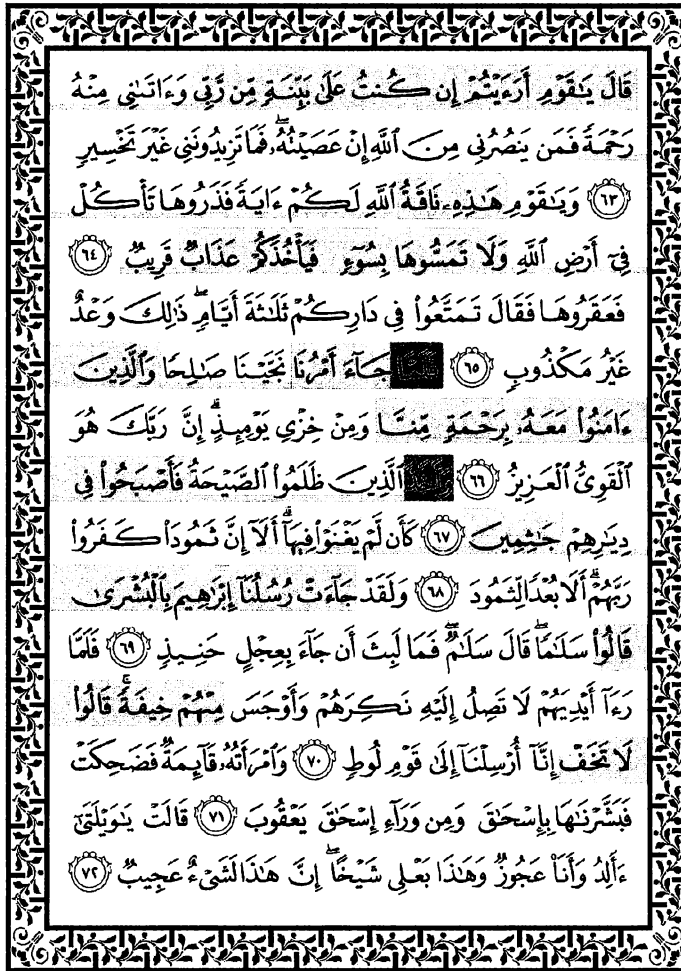 قَالَ يَٰقَوْمِ أَرَءَيْتُمْ إِن كُنتُ عَلَىٰ بَيِّنَةٍ مِّن رَّبِّى وَءَاتَىٰنِى مِنْهُ
رَحْمَةً فَمَن يَنصُرُنِى مِنَ ٱللَّهِ إِنْ عَصَيْتُهُۥۖ فَمَا تَزِيدُونَنِى غَيْرَ تَخْسِيرٍ
٦٣ وَيَٰقَوْمِ هَٰذِهِۦ نَاقَةُ ٱللَّهِ لَكُمْ ءَايَةً فَذَرُوهَا تَأْكُلْ
فِىٓ أَرْضِ ٱللَّهِ وَلَا تَمَسُّوهَا بِسُوٓءٍ فَيَأْخُذَكُمْ عَذَابٌ قَرِيبٌ ٦٤
فَعَقَرُوهَا فَقَالَ تَمَتَّعُوا۟ فِى دَارِكُمْ ثَلَٰثَةَ أَيَّامٍۖ ذَٰلِكَ وَعْدٌ
غَيْرُ مَكْذُوبٍ ٦٥ جَآءَ أَمْرُنَا نَجَّيْنَا صَٰلِحًا وَٱلَّذِينَ
ءَامَنُوا۟ مَعَهُۥ بِرَحْمَةٍ مِّنَّا وَمِنْ خِزْىِ يَوْمِئِذٍۗ إِنَّ رَبَّكَ هُوَ
ٱلْقَوِىُّ ٱلْعَزِيزُ ٦٦ ٱلَّذِينَ ظَلَمُوا۟ ٱلصَّيْحَةُ فَأَصْبَحُوا۟ فِى
دِيَٰرِهِمْ جَٰثِمِينَ ٦٧ كَأَن لَّمْ يَغْنَوْا۟ فِيهَآۗ أَلَآ إِنَّ ثَمُودَا۟ كَفَرُوا۟
رَبَّهُمْۗ أَلَا بُعْدًا لِّثَمُودَ ٦٨ وَلَقَدْ جَآءَتْ رُسُلُنَآ إِبْرَٰهِيمَ بِٱلْبُشْرَىٰ
قَالُوا۟ سَلَٰمًاۖ قَالَ سَلَٰمٌۖ فَمَا لَبِثَ أَن جَآءَ بِعِجْلٍ حَنِيذٍ ٦٩ فَلَمَّا
رَءَآ أَيْدِيَهُمْ لَا تَصِلُ إِلَيْهِ نَكِرَهُمْ وَأَوْجَسَ مِنْهُمْ خِيفَةًۚ قَالُوا۟
لَا تَخَفْ إِنَّآ أُرْسِلْنَآ إِلَىٰ قَوْمِ لُوطٍ ٧٠ وَٱمْرَأَتُهُۥ قَآئِمَةٌ فَضَحِكَتْ
فَبَشَّرْنَٰهَا بِإِسْحَٰقَ وَمِن وَرَآءِ إِسْحَٰقَ يَعْقُوبَ ٧١ قَالَتْ يَٰوَيْلَتَىٰٓ
ءَأَلِدُ وَأَنَا۠ عَجُوزٌ وَهَٰذَا بَعْلِى شَيْخًاۖ إِنَّ هَٰذَا لَشَىْءٌ عَجِيبٌ ٧٢